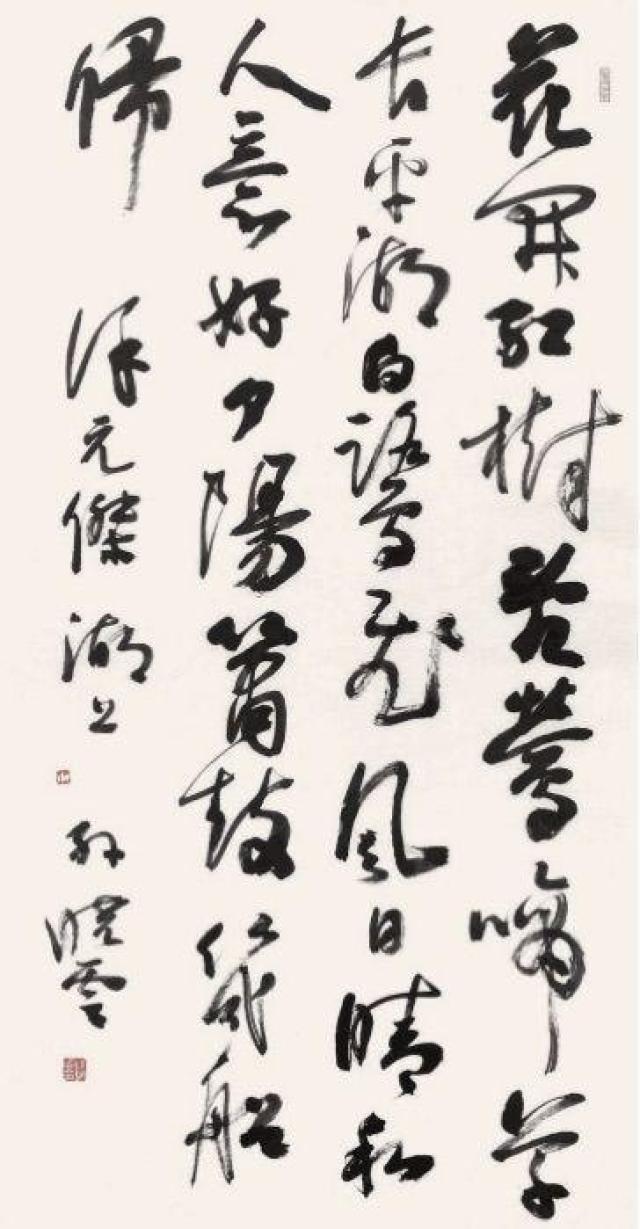 花開紅樹亂鶯啼草
長平湖白鷺飛風日晴和
人意好夕陽簫鼓幾船
歸 徐元傑 湖上 孫曉雲